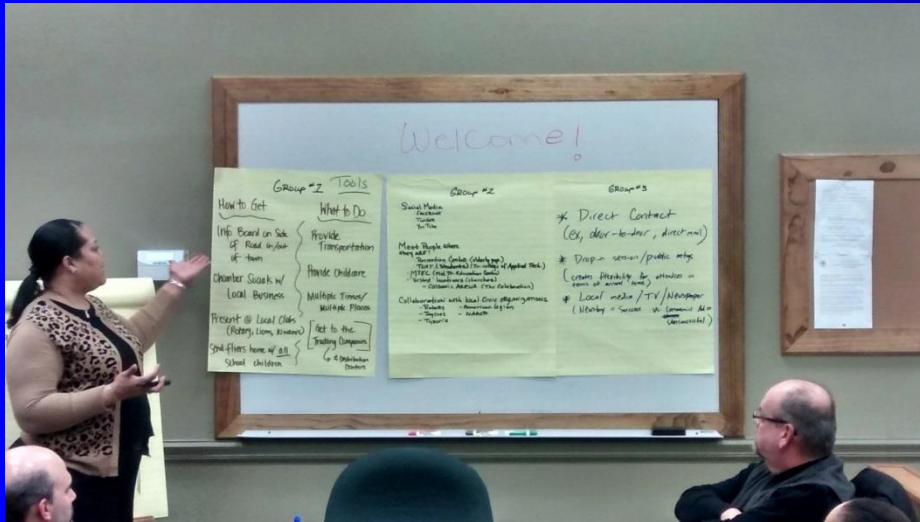 Welcome!
Group #1 Tools
How to Get
Info Board on Side
of Road in/out
of town
Chamber Socials w/
Local Business
Present @ Local Clubs
(Rotary, Lions, Kiwanis)
Send fliers home w/ all
school children
What to Do
Provide
Transportation
Provide Childcare
Multiple Times/
Multiple Places
Get to the
Trucking Companies
& Distribution
Centers
Group #2
Social Media
Facebook
Twitter
YouTube
Meet People Where
they are!
Recreation Center (Elderly pop)
TCAT (Students)
MTEC
Collaboration with local civic organizations
- Rotary
- American Legion
- Jaycees
Group #3
* Direct Contact
(ex, door-to-door, direct mail)
* Drop-in session/public mtgs
(creates flexibility for attendees in
terms of arrival time)
* Local media/TV/Newspaper
(Newberry = Success vs.
Unsuccessful)